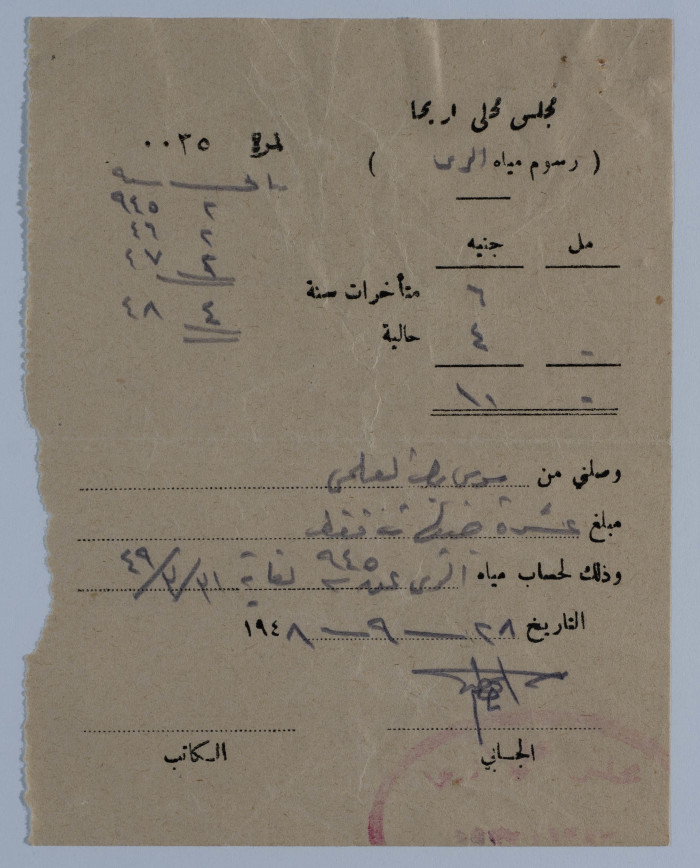 مجلس محلي اريحا
نمرة ٠٠٣٥
( رسوم مياه الري )
مل جنيه
متأخرات سنة ٦
حالية ٤ -
١٠ -
٢ ٩٤٥
٢ ٤٦
٢ ٤٧
٤ ٤٨
وصلني من موسى العلمي
مبلغ عشرة جنيهات فقط
وذلك لحساب مياه الري عن سنة ٩٤٥ لغاية ٣١/٣/٤٩
التاريخ ٢٨ - ٩ - ١٩٤٨
الجابي الكاتب